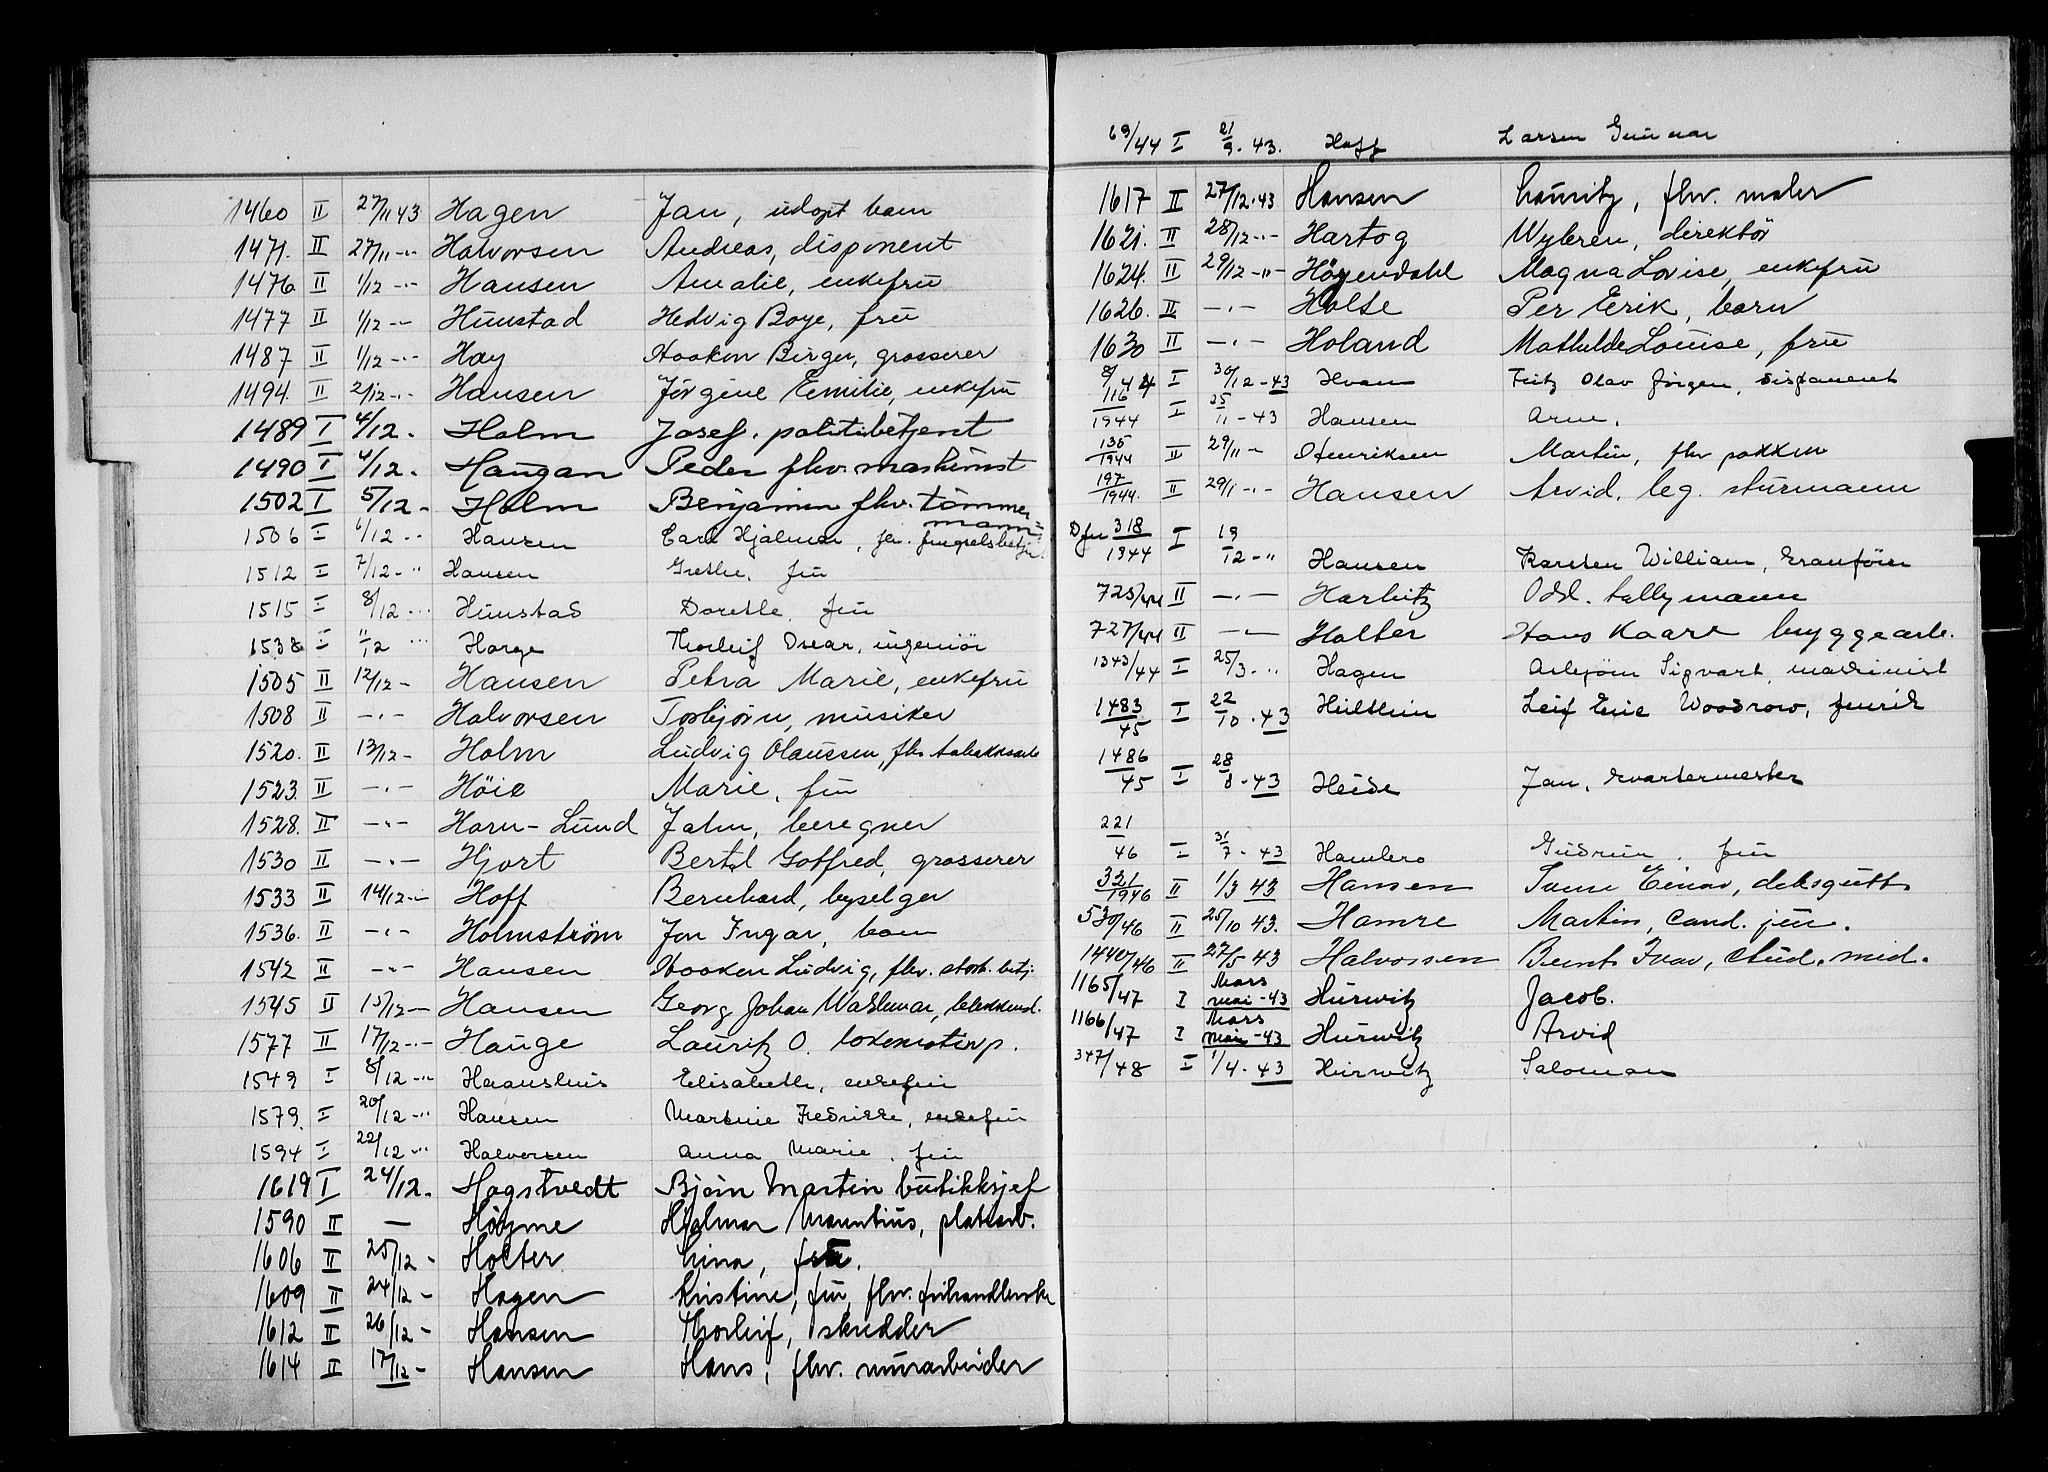 1460 II 27/11 43 Hagen Jan, udøpt barn
1471. II 27/11 -"- Halvorsen Andreas, disponent
1476 II 1/12 -"- Hansen Amalie, enkefru
1477 II 1/12 -"- Hunstad Hedvig Boye, fru
1487 II 1/12 -"- Hay Haakon Birger, grosserer
1494 II 2/12 -"- Hansen Jörgine Emilie, enkefru
1489 I 4/12. Holm Josef. politibetjent
1490 I 4/12. Haugan Peder fhv. maskinist
1502 I 5/12 - Holm Benjamin fhv. tömmer=
mann
1506 I 6/12 -"- Hansen Carl Hjalmar, fv. fengselsbetj.
1512 I 7/12 -" Hansen Grethe. fru
1515 I 8/12 -"- Hunstad Dorethe. fru
1538 I 11/12 -"- Horge Thorleif Oscar, ingeniör
1505 II 12/12 - Hansen Petra Marie, enkefru
1508 II -"- Halvorsen Torbjörn, musiker
1520. II 13/12 - Holm Ludvig Olaussen, fhv. tobakksarb
1523. II -"- Höie Marie, fru
1528. II -"- Horn-Lund John, beregner
1530 II -"- Hjort Bertil Gotfred, grosserer
1533 II 14/12 -"- Hoff Bernhard, byselger
1536. II -"- Holmström Jon Ingar, barn
1542 II -"- Hansen Haakon Ludvig, fhv. stort. betj.
1545 II 15/12 - Hansen Georg Johan Waldemar, blikkensl.
1577 II 17/12 -"- Hauge Lauritz O. lokomotivf.
1549 I 8/12 -"- Haanshus Elisabeth, enkefru
1579. I 20/12 -"- Hansen Martine Fredrikke, enkefru
1594 I 22/12 -"- Halvorsen Anna Marie. fru
1619 I 24/12. Hogstvedt Bjørn Martin butikksjef
1590 II — Höyme Hjalmar Mauritius, platearb.
1606 II 25/12 - Holter Lina, fru.
1609 II 24/12 - Hagen Kristine, fru, fhv. frihandlerske
1612 II 26/12 - Hansen Thorleif, skredder
1614 II 17/12 - Hansen Hans, fhv. murarbeider
69/44 I 21/9. 43. Hoff Larsen Gunnar
1617 II 27/12.43 Hansen Lauritz, fhv. maler
1621. II 28/12 -"- Hartog Wybren, direktör
1624. II 29/12 -"- Höyendahl Magna Lovise, enkefru
1626. II -"- Holte Per Erik, barn
1630 II -"- Holand Mathilde Louise, fru
8/44 I 30/12 -43 Hvam Fritz Olav Jörgen, disponent
116/1944 I 25/11 -43 Hansen Arne.
135/1944 II 29/11 - Henriksen Martin, fhv pakkm
197/1944. II 29/11 -"- Hansen Arvid. leg. sturmann
Dfu 318/1944 I 19/12 -" Hansen Karsten William, kranförer
725/44 II -"- Harbitz Odd. tallymann
727/44 II -"- Holter Hans Kaare bryggearb.
1343/44 I 25/3 -"- Hagen Asbjörn Sigvart, maskinist
1483/45 I 22/10 .43 Leif Eric Woodrow, fenrik
1486/45 I 28/8 -43 Heide Jan, kvartermester
221/46 I 31/7 - 43 Hambro Gudrun, fru
321/1946 II 1/3 43 Hansen Einar, dekksgutt
530/46 II 25/10 43. Hamre Martin, Cand. jur.
1440/46 II 27/5 43 Halvorsen Bernt Ivar, stud. med.
1165/47 I Mars mai -43 Hurwitz Jacob.
1166/47 I Mars mai -43 Hurwitz Arvid
347/48 I 1/4 - 43 Hurwitz Saloman